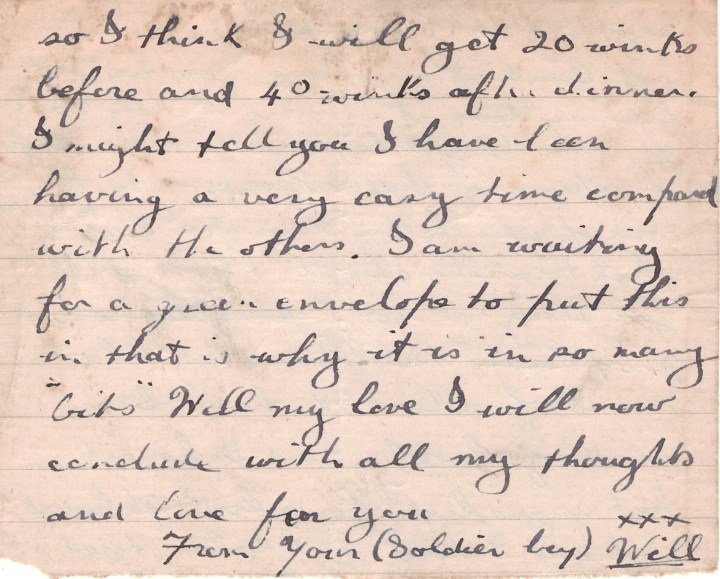 so I think I will get 20 winks
before and 40 winks after dinner.
I might tell you I have been
having a very easy time compared
with the others. I am waiting
for a green envelope to put this
in that is why it is in so many
"bits" Well my love I will now
conclude with all my thoughts
and love for you
xxx
From Your (Soldier boy) Will